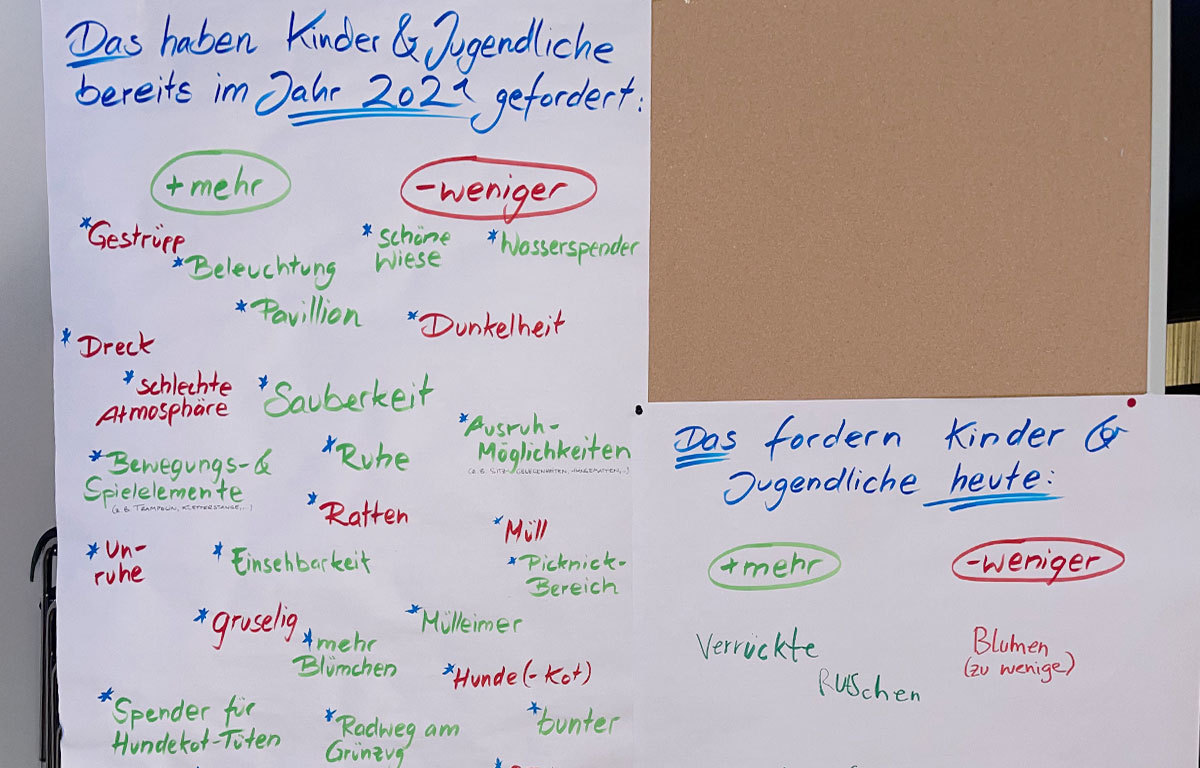 Das haben Kinder & Jugendliche
bereits im Jahr 2021 gefordert:
+mehr
-weniger
*Gestrüpp
*Beleuchtung
*schöne
Wiese
*Wasserspender
*Pavillion
*Dunkelheit
*Dreck
*schlechte
Atmosphäre
*Sauberkeit
*Ausruh-
Möglichkeiten
*Bewegungs-&
Spielelemente
(z.B. Trampolin, Kletterstange,...)
*Ruhe
*Ratten
*Müll
*Un-
ruhe
*Einsehbarkeit
*Picknick-
Bereich
*gruselig
*mehr
Blümchen
*Mülleimer
*Hunde(-Kot)
*Spender für
Hundekot-Tüten
*Radweg am
Grünzug
*bunter
Das fordern Kinder &
Jugendliche heute:
+mehr
-weniger
Verrückte
Rutschen
Blumen
(zu wenige)